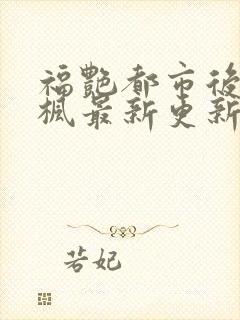 福艷都市後
楓最新更新
若妃